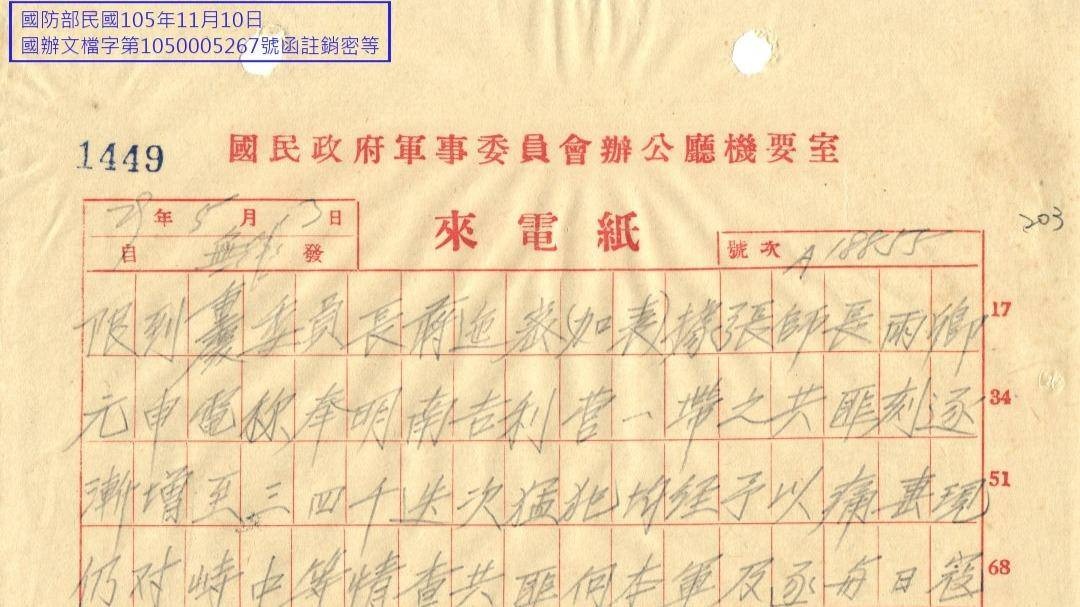 國防部民國105年11月10日
國辦文檔字第1050005267號函註銷密等
1449
國民政府軍事委員會辦公廳機要室
29年5月13日
自 發
來電紙
號次 A18855
203
限到 委員長蔣 密(加表)據張師長雨卿
17
元申電称奉明南吉利营一帶之共匪刻逐
34
漸增至三四千迭次猛犯均經予以痛 現
51
仍对峙中等情查共匪 本軍及逐每日寇
68